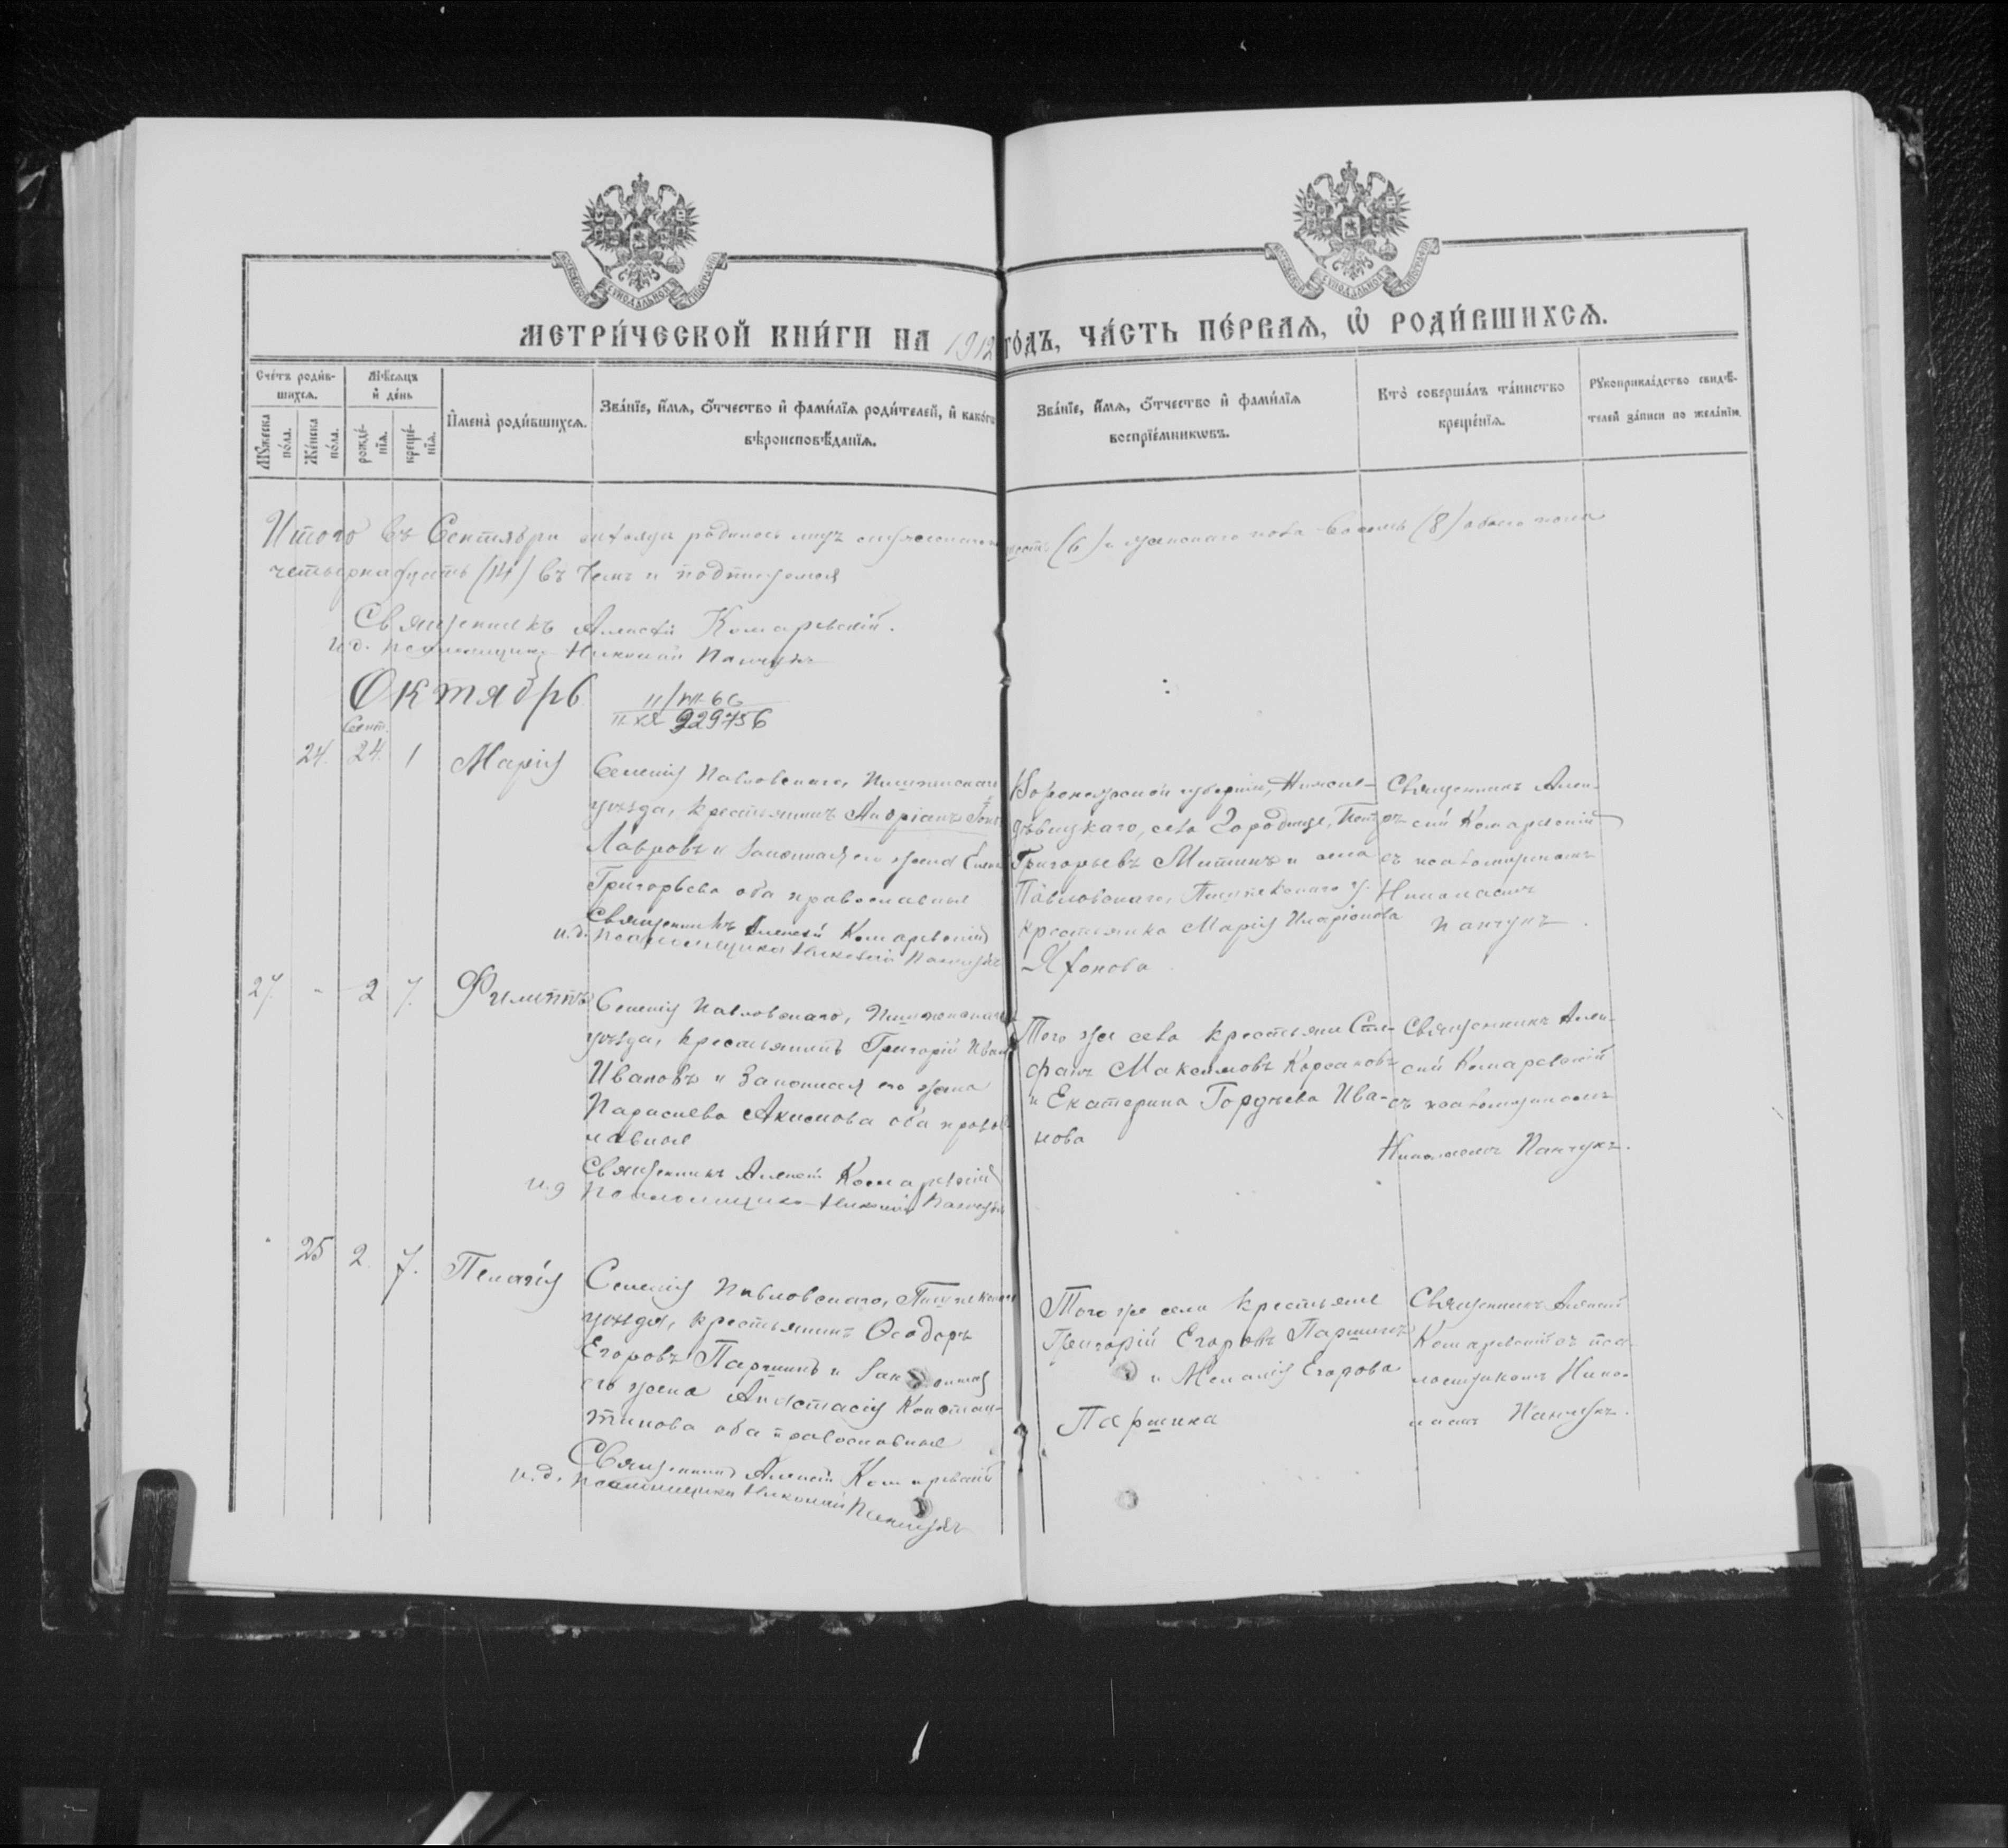 МОСКОВСКОЙ СѴНОДАЛЬНОЙ ТИПОГРАФІИ
МОСКОВСКОЙ СѴНОДАЛЬНОЙ ТИПОГРАФІИ
МЕТРИ́ЧЕСКОЙ КНИ́ГИ НА 1912 ГО́ДЪ, ЧА́СТЬ ПЕ́РВАѦ, Ѡ҆ РОДИ́ВШИХСѦ.
Сче́тъ роди́в-
шихсѧ.
Мꙋ́жеска по́ла.
Же́нска по́ла.
Мѣ́сѧцъ
и҆ де́нь
рожде́-
нїѧ.
креще́-
нїѧ.
И҆мена̀ роди́вшихсѧ.
Зва́нїе, и҆́мѧ, ѻ҆́тчество и҆ фами́лїѧ роди́телей, и҆ како́гѡ
вѣроисповѣ́данїѧ.
Зва́нїе, и҆́мѧ, ѻ҆́тчество и҆ фами́лїѧ
воспрїе́мникѡвъ.
Кто̀ соверша́лъ та́инство
креще́нїѧ.
Рꙋкоприкла́дство свидѣ́-
телей за́писи по жела́нїю.
Итого въ Сентябрѣ мѣсяцѣ родилось муж шесть (6) и женскаго пола восемь (8) обоего пола
четырнадцать (14) въ чемъ и подписуемся
Священникъ Алексѣй Комаревскій.
и.д. псаломщика Николай Панчукъ
Октябрь
229756
Сент.
24. 24. 1 Марія
Селенія Павловскаго, Пишпекскаго
уѣзда, крестьянинъ Андріанъ
Лавровъ и законная его жена
Григорьева оба православные
Священникъ Алексѣй Комаревскій
и.д. псаломщика Николай Панчукъ
Воронежской губерніи, Нижне-
дѣвицкаго, села Городище, Петръ
Григорьевъ Митинъ и села
Павловскаго, Пишпекскаго у.
крестьянка Марія Иларіонова
Священникъ Алек-
сѣй Комаревскій
съ псаломщикомъ
Николаемъ
Панчукъ.
27. - 2 7. Филиппъ
Селенія Павловскаго, Пишпекскаго
уѣзда, крестьянинъ Григорій Иван
Ивановъ и законная его жена
Параскева Акимова оба правос
лавные
Священникъ Алексѣй Комаревскій
и.д псаломщика Николай Панчукъ
Того же села крестьяне Сте-
фанъ Максимовъ Корсаковъ
и Екатерина Гордѣева Ива-
нова
Священникъ Алек-
сѣй Комаревскій
съ псаломщикомъ
Николаемъ Панчукъ.
25 2. 7. Пелагія
Селенія Павловскаго, Пишпекскаго
уѣзда, крестьянинъ Ѳеодоръ
Егоровъ Паршинъ и законная
его жена Анастасія Констан-
тинова оба православные
Священникъ Алексѣй Комаревскій
и.д. псаломщика Николай Панчукъ
Того же села крестьяне
Григорій Егоровъ Паршинъ
и Меланія Егорова
Паршина
Священникъ Алексѣй
Комаревскій съ пса-
ломщикомъ Нико-
лаемъ Панчукъ.